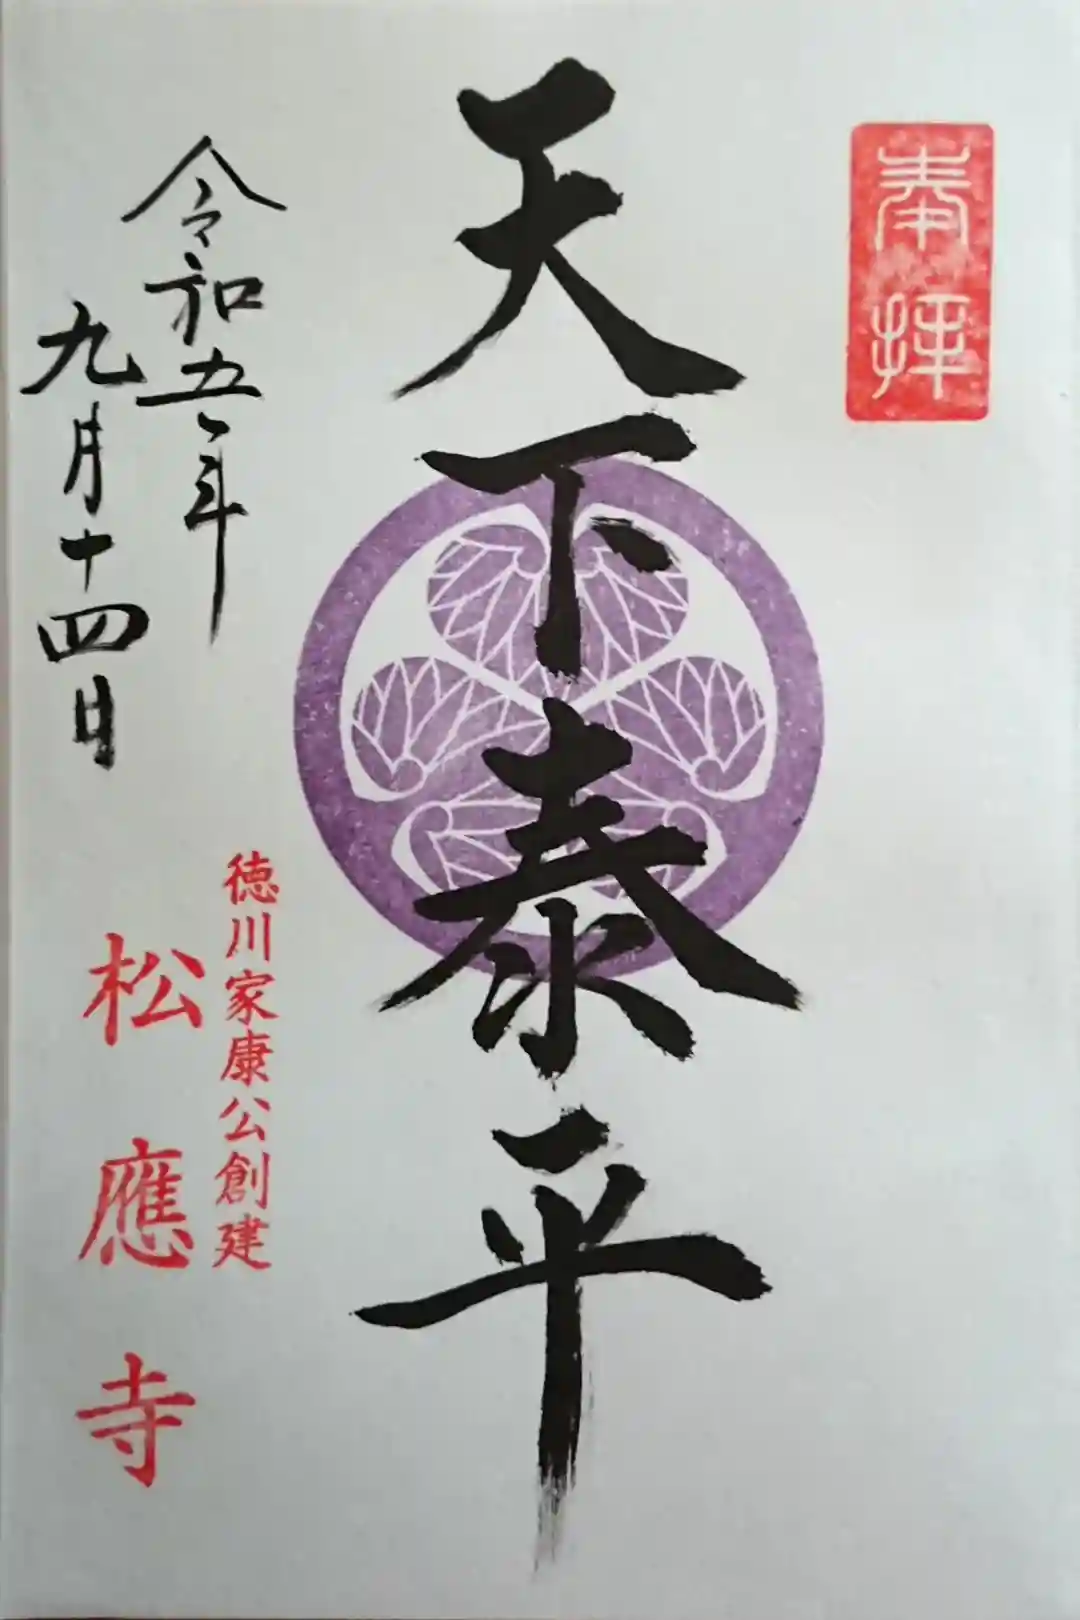 奉拝
天下泰平
徳川家康公創建
松應寺
令和五年
九月十四日